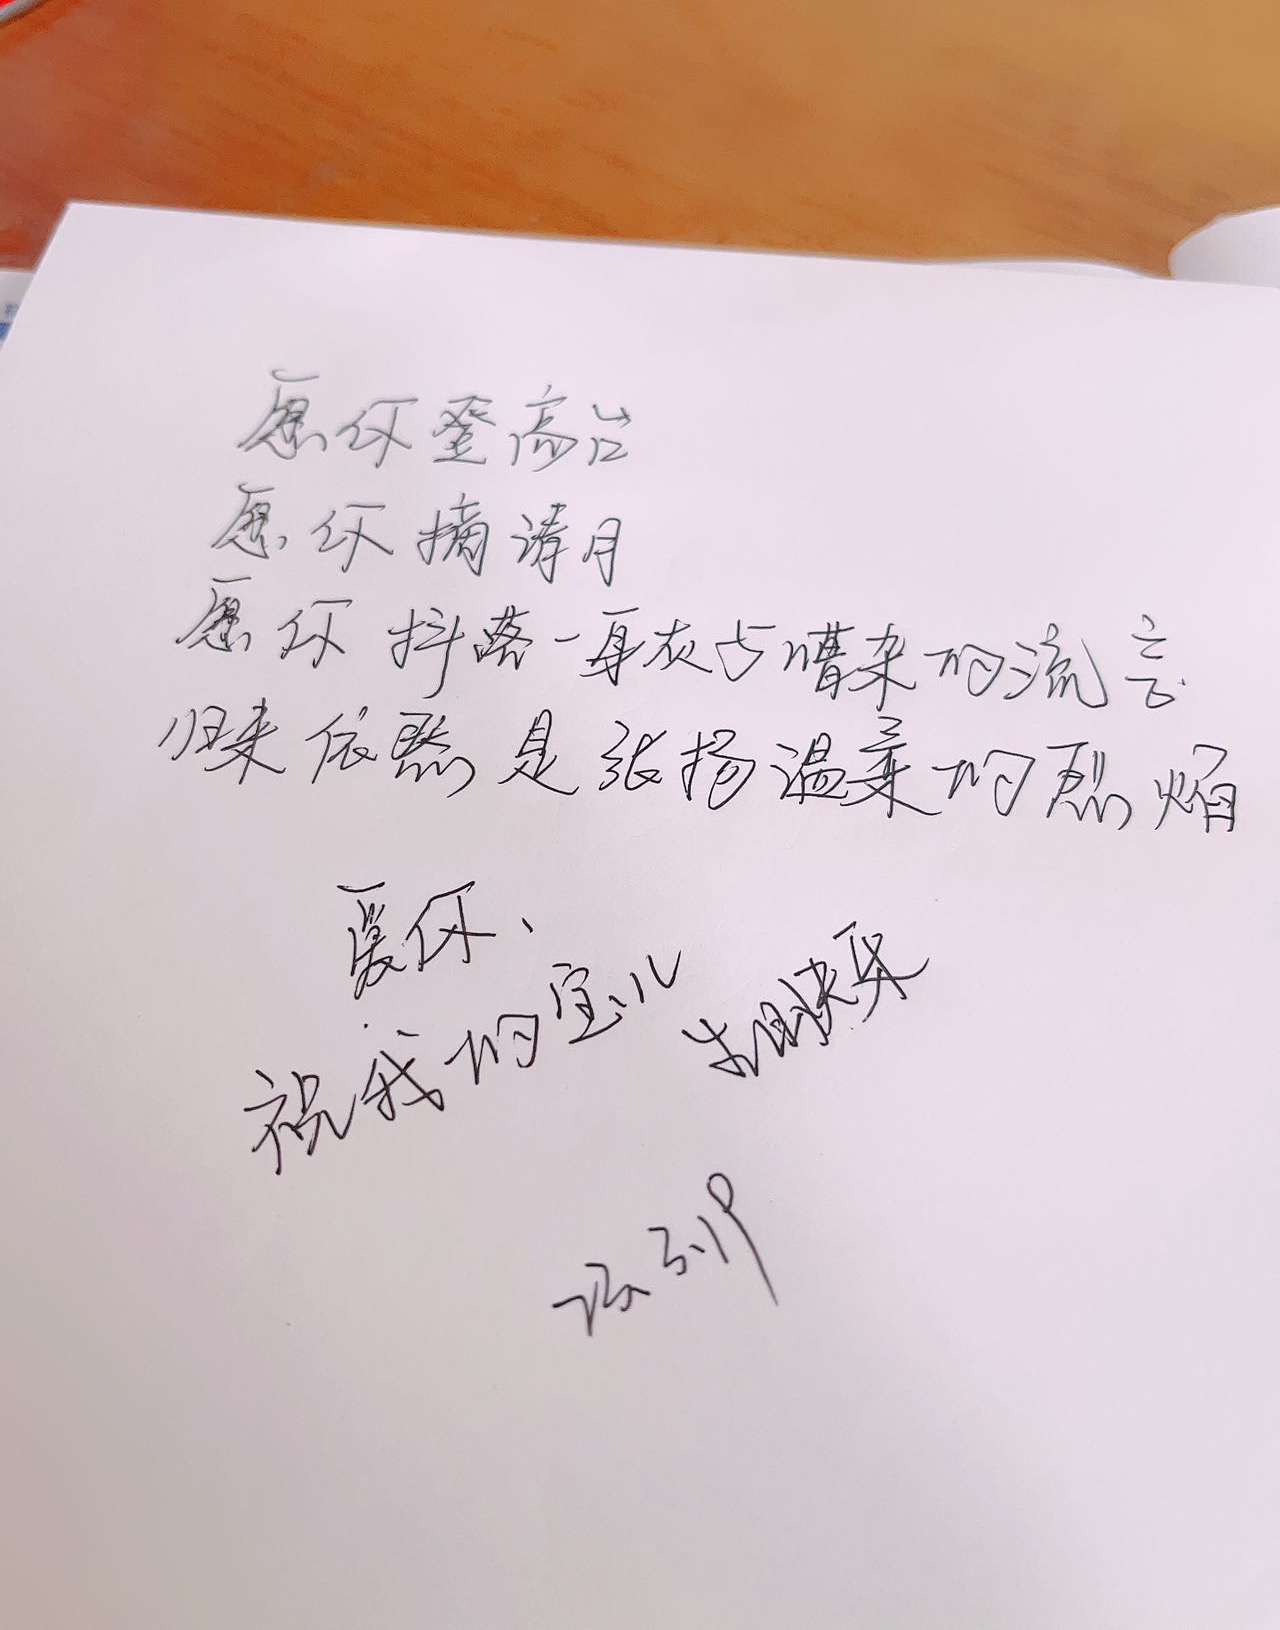 愿你登高台
愿你摘请月
愿你抖落一身灰与嘈杂的流言
归来依然是张扬温柔的烈焰
爱你、
祝我的宝儿
生日快乐